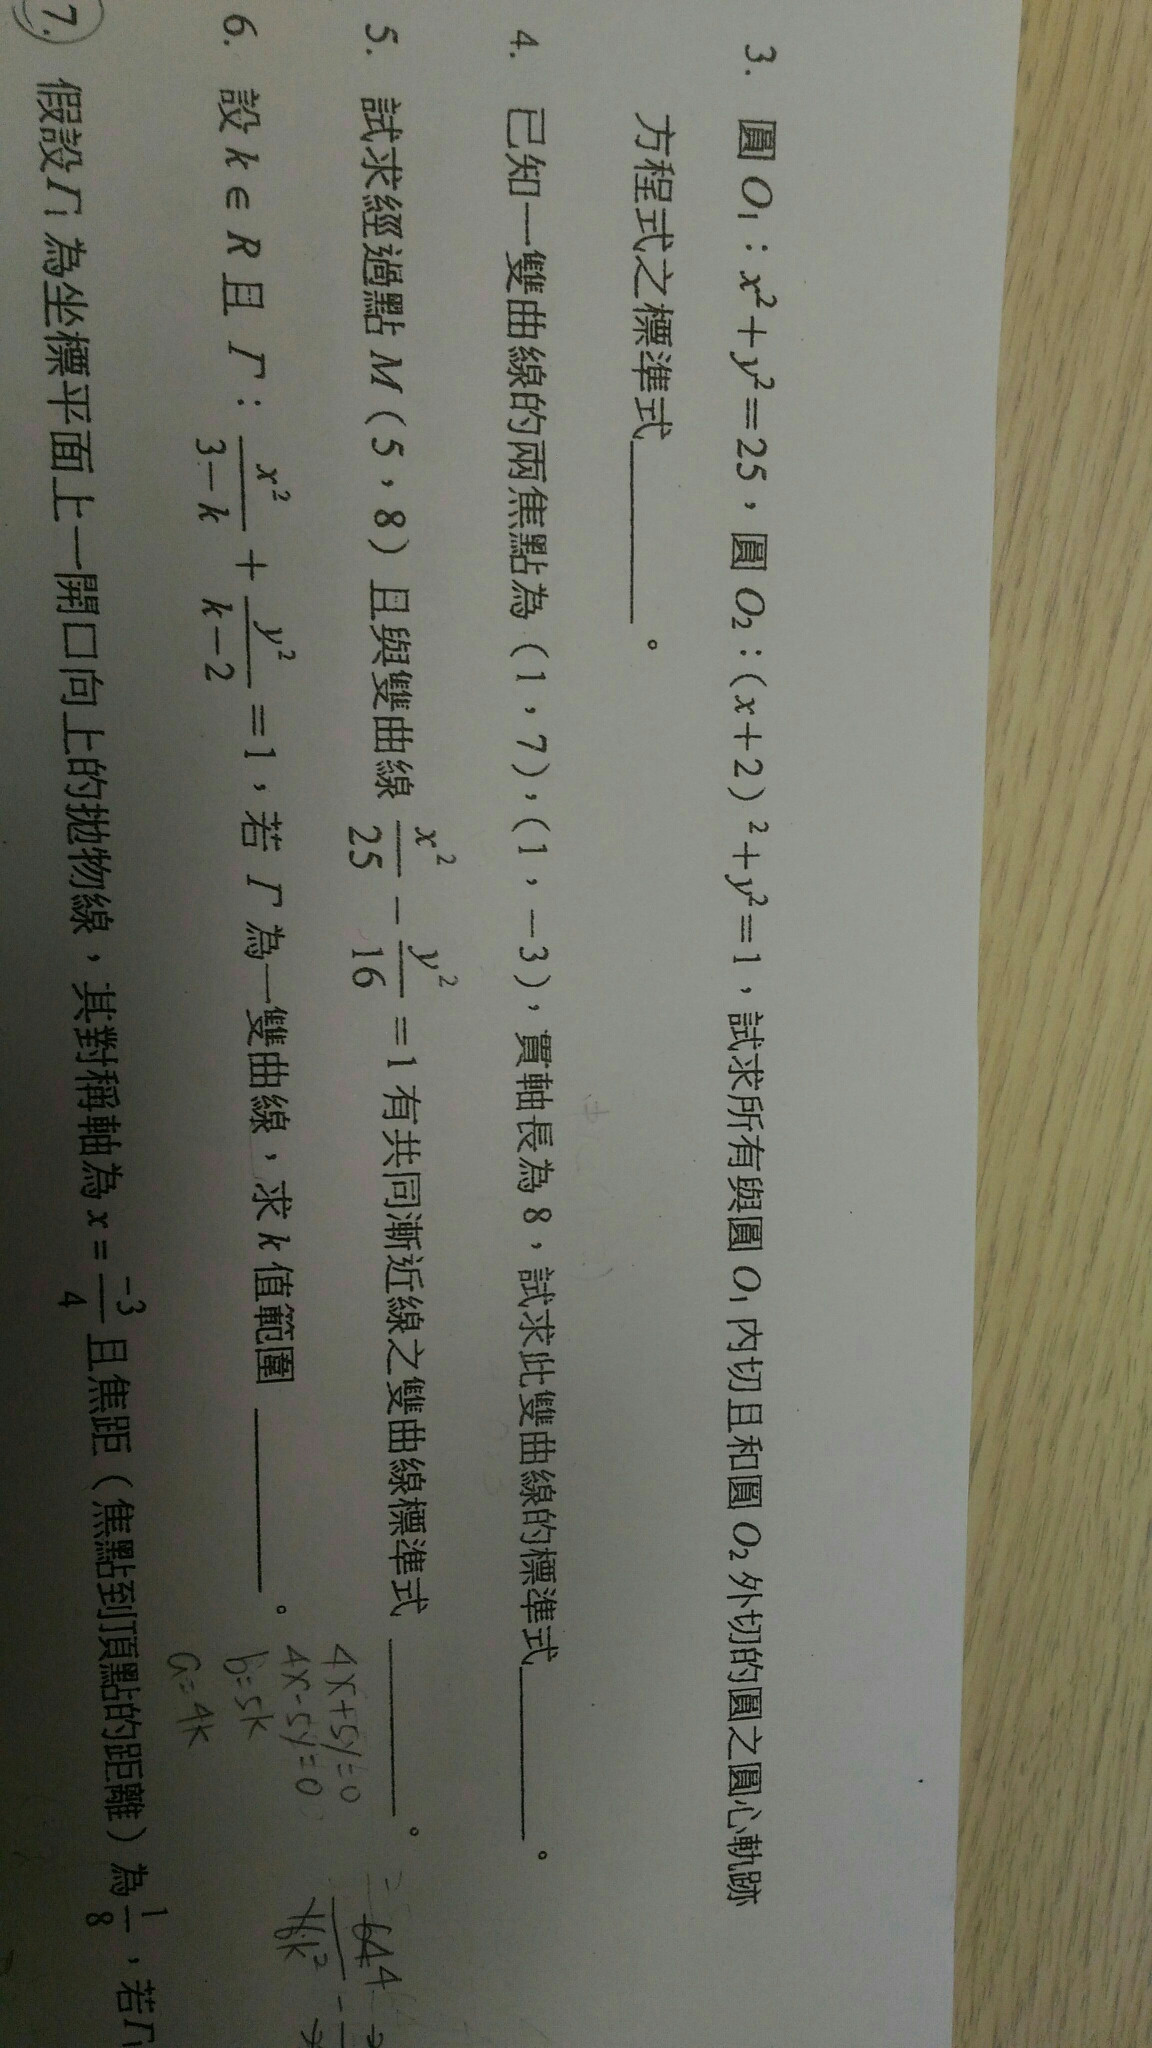 3. 圓 O₁：x²＋y²＝25，圓 O₂：(x＋2)²＋y²＝1，試求所有與圓 O₁ 內切且和圓 O₂ 外切的圓之圓心軌跡
方程式之標準式______。
4. 已知一雙曲線的兩焦點為（1，7），（1，－3），貫軸長為 8，試求此雙曲線的標準式______。
5. 試求經過點 M（5，8）且與雙曲線 x²/25 － y²/16 ＝1 有共同漸近線之雙曲線標準式______。
6. 設 k ∈ R 且 Γ：x²/(3－k) ＋ y²/(k－2) ＝1，若 Γ 為一雙曲線，求 k 值範圍______。
4x+5y=0
4x-5y=0
b=5k
a=4k
7. 假設 Γ₁ 為坐標平面上一開口向上的拋物線，其對稱軸為 x＝－3/4 且焦距（焦點到頂點的距離）為 1/8，若 Γ